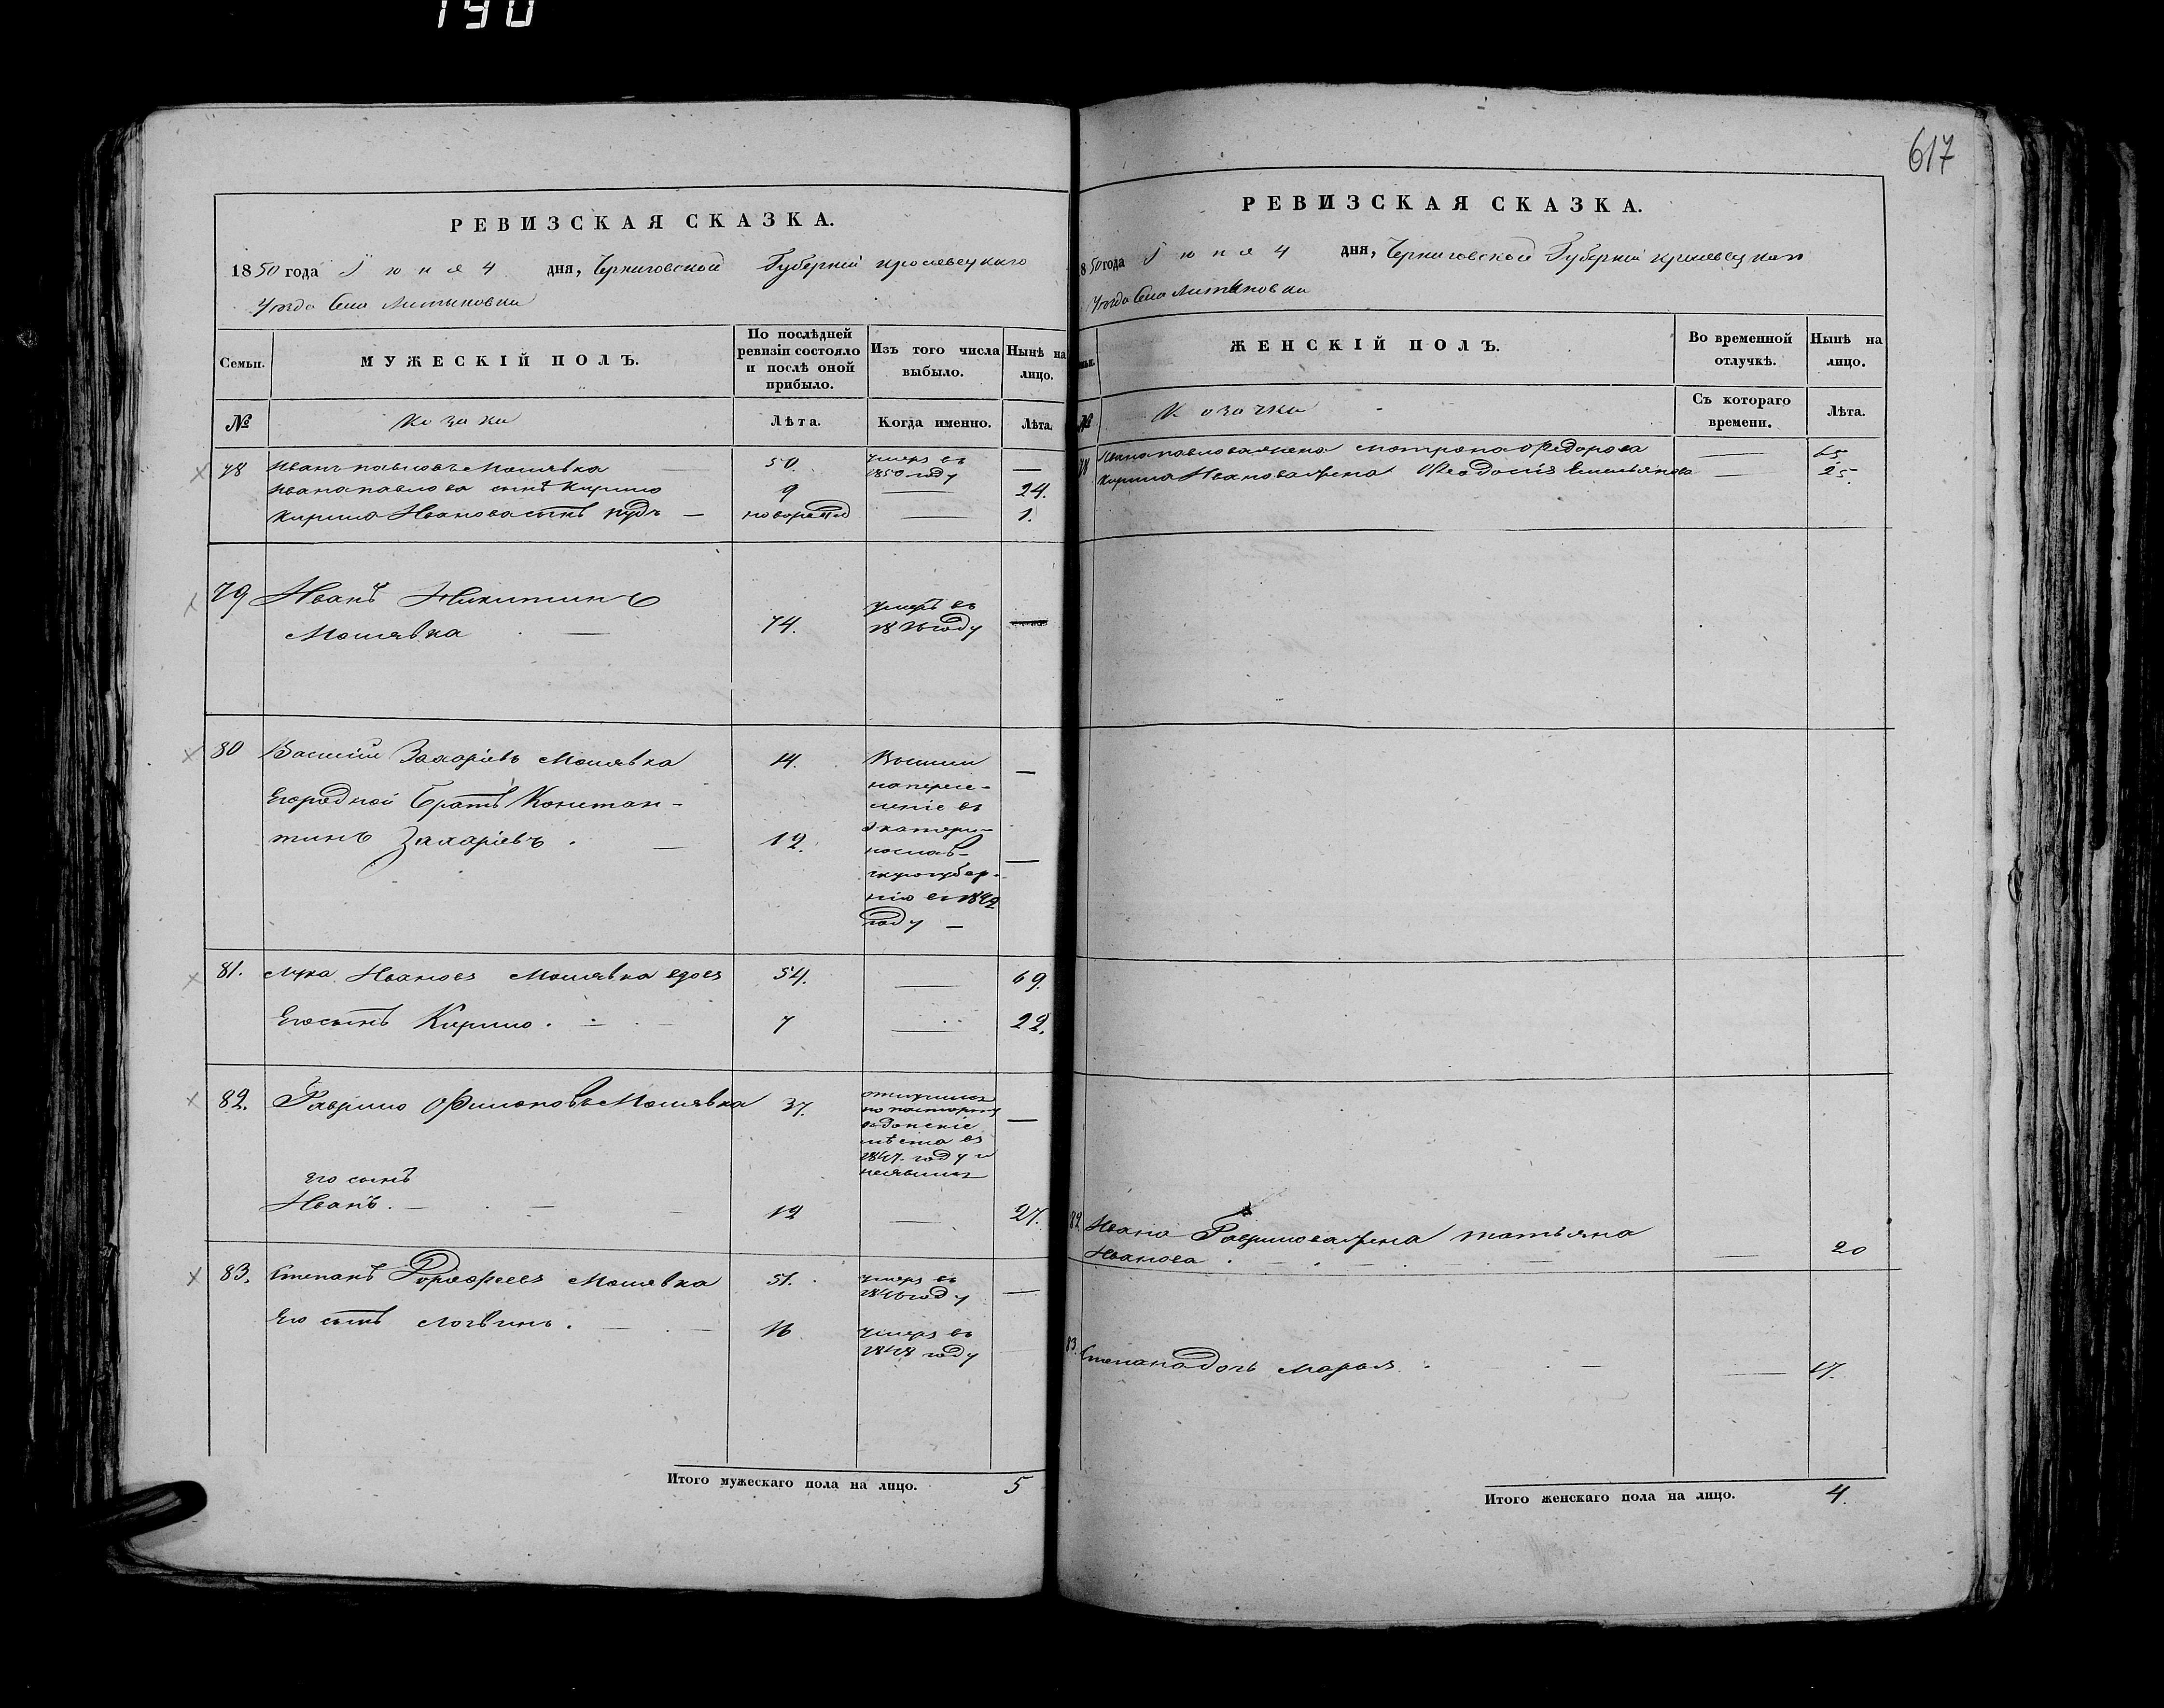 190
617
РЕВИЗСКАЯ СКАЗКА.
1850 года Іюня 4 дня, Черниговской Губерніи кролевецкаго
Уѣзда Села Литвиновки
Семьи.
МУЖЕСКІЙ ПОЛЪ.
По послѣдней ревизіи состояло и послѣ оной прибыло.
Изъ того числа выбыло.
Нынѣ на лицо.
№
козаки
Лѣта.
Когда именно.
Лѣта.
78 Иванъ павловъ Мошявка 50. умеръ въ 1850 году —
Ивана павлова сынъ Кирило 9 — 24.
Кирила Иванова сынъ — новорожд — 1.
79 Иванъ Никитинъ
Мошявка — 74. умеръ въ 1836 году —
80 Василій Захаріевъ Мошявка 14. —
Егородной братъ Констан-
тинъ Захаріевъ. — 12. —
на пересе-
леніе въ
Екатери-
нослав-
скую губер-
нію въ 1842
году —
81. Лука Ивановъ Мошявка вдовъ 54. — 69.
Его сынъ Кирило. — 7 — 22.
82. Гаврило Филоновъ Мошявка 37. —
отлучился
по паспорту
въ донскіе
мѣста въ
1847. году и
неявился
его сынъ
Иванъ. — 12 — 27.
83. Степанъ Дорофеевъ Мошявка 51. умеръ въ 1846 году —
Его сынъ Логвинъ. — 16 умеръ въ 1848 году
Итого мужескаго пола на лицо. 5
РЕВИЗСКАЯ СКАЗКА.
1850 года Іюня 4 дня, Черниговской Губерніи кролевецкаго
Уѣзда Села Литвиновки
ЖЕНСКІЙ ПОЛЪ.
Во временной отлучкѣ.
Нынѣ на лицо.
№
козачки
Съ котораго времени.
Лѣта.
78 Ивана павлова жена Матрона Федорова — 65
Кирила Иванова жена Феодосія Емельянова — 25.
82 Ивана Гаврилова жена татьяна
Иванова. — 20
83. Степана дочь Марья. — 17.
Итого женскаго пола на лицо. 4.